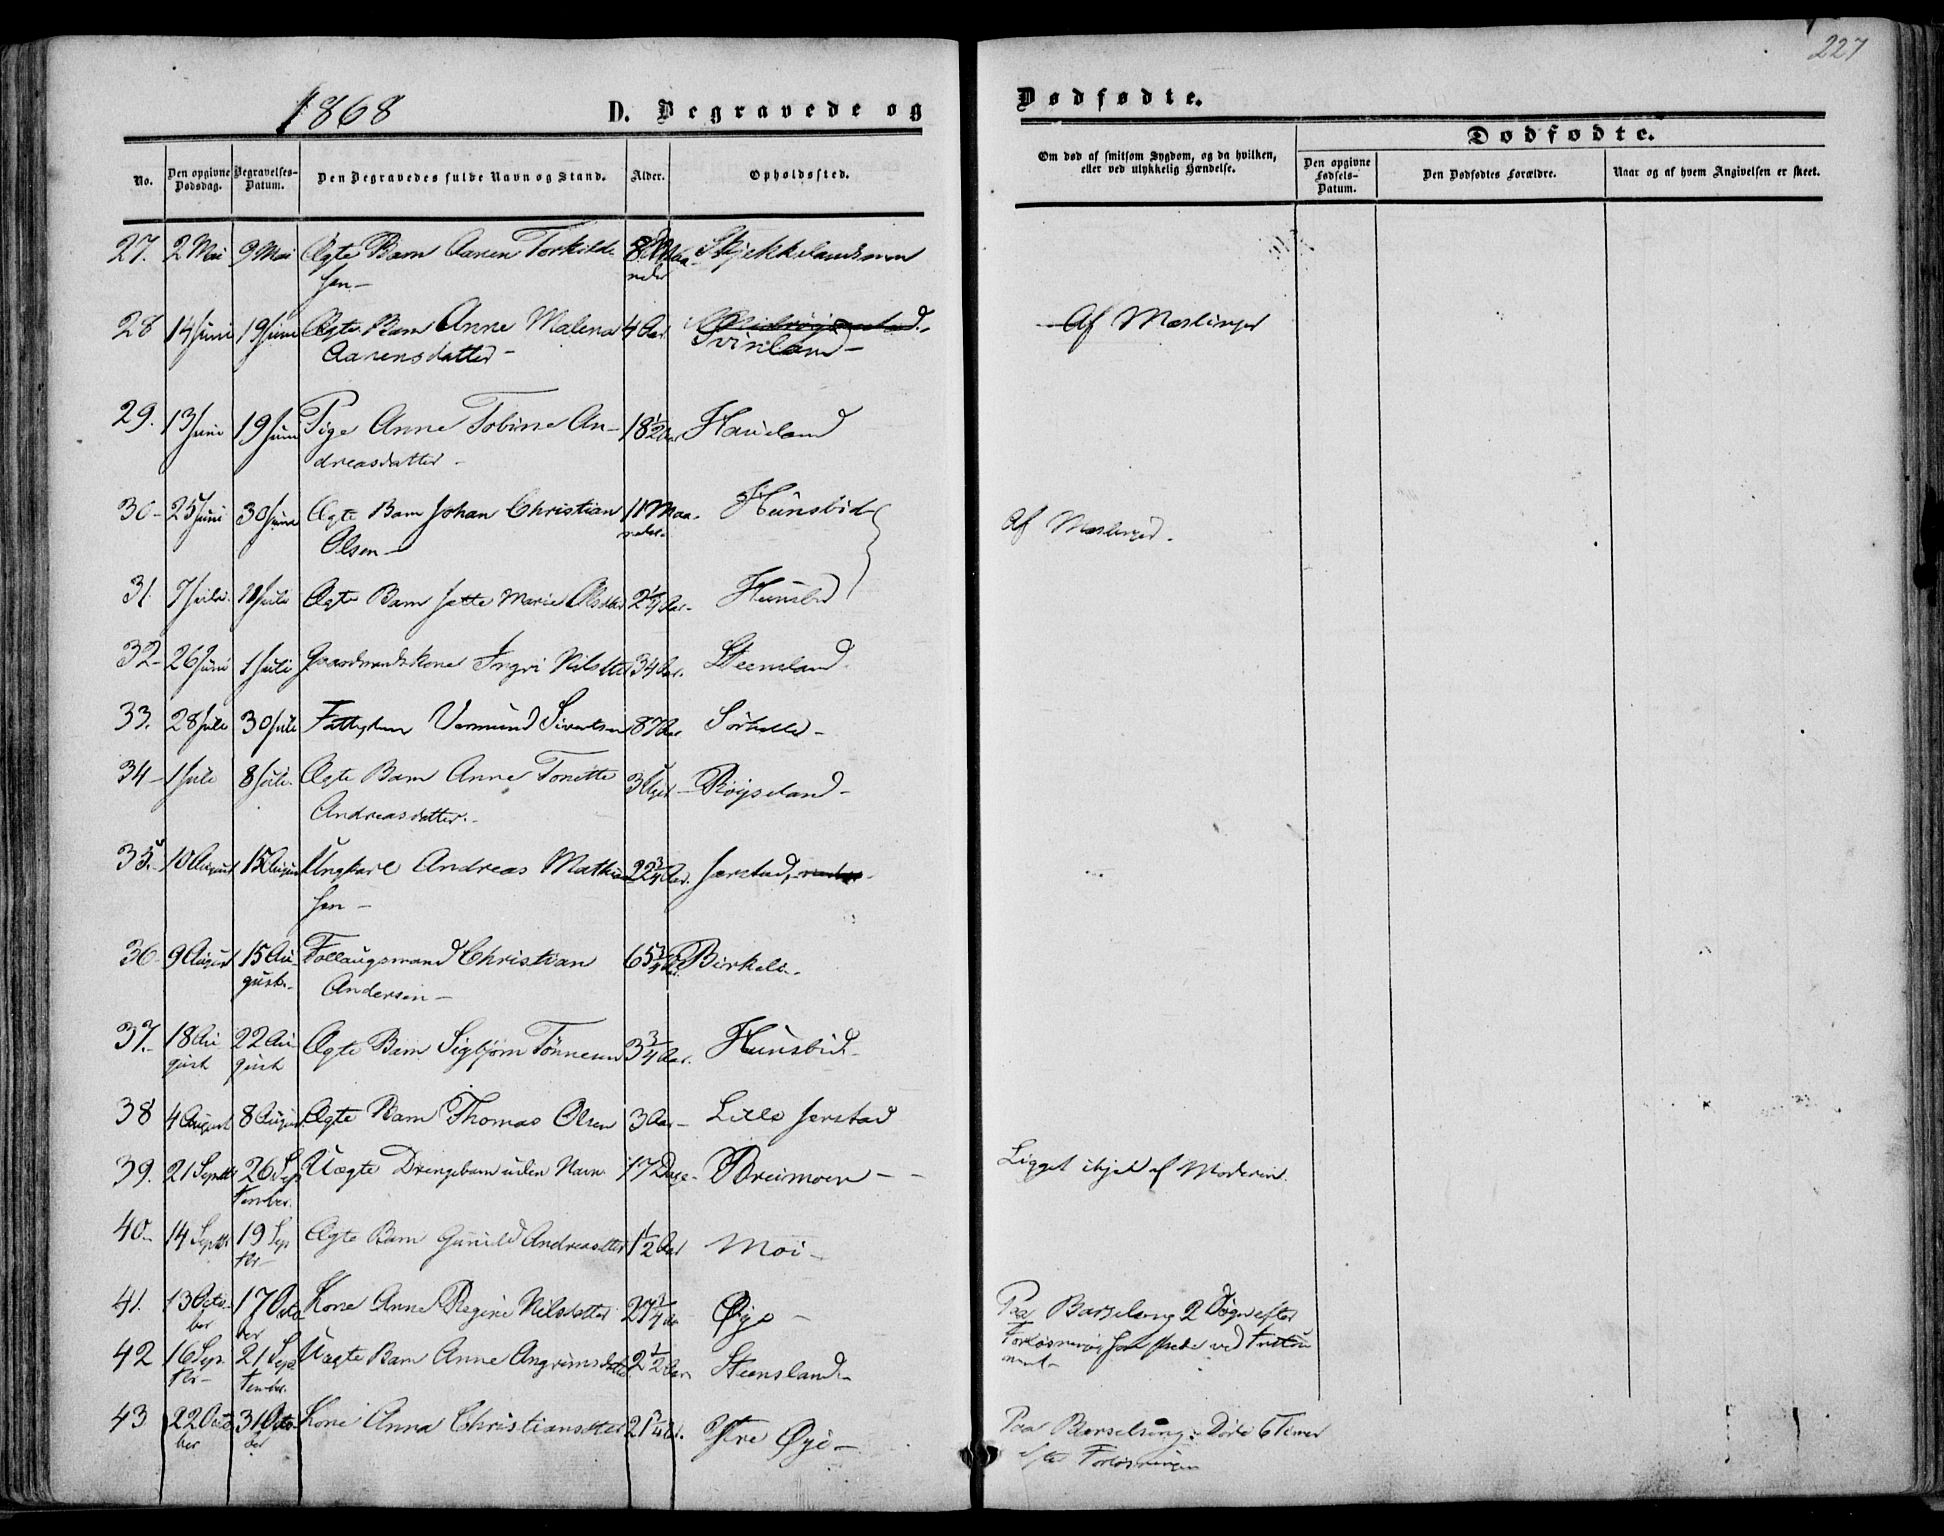 227
1868
D. Begravede og
Dødfødte.
Dødfødte.
No.
Den opgivne Dødsdag.
Begravelses-Datum.
Den Begravedes fulde Navn og Stand.
Alder.
Opholdssted.
Om død af smitsom Sygdom, og da hvilken, eller ved ulykkelig Hændelse.
Den opgivne Fødsels-Datum.
Den Dødfødtes Forældre.
Naar og af hvem Angivelsen er skeet.
27. 2 Mai 9 Mai Ægte Barn Aanen Torkild- 8 Maa-
sen - neder
28 14 Juni 19 Juni Ægte Barn Anne Malena 4 Aar Af Mæslinger
Aanensdatter - Svinland -
29. 13 Juni 19 Juni Pige Anne Tobine An- 18 1/2 Aar Haueland
dreasdatter -
30 - 25 Juni 30 Juni Ægte Barn Johan Christian 11 Maa- Hunsbid Af Mæslinger.
Olsen - neder
31. 7 Juli 11 Juli Ægte Barn Jette Marie Olsdtter 2 1/4 Aar Hunsbid
32 - 26 Juni 1 Juli Gaardmandskone Ingri Nilsdtter 34 Aar. Steensland.
33. 28 Juli 30 Juli Vermund Sivertsen 87 Aar
34 - 1 Juli 8 Juli Ægte Barn Anne Tonette 3 Uger - Röyseland -
Andreasdatter. -
35. - 10 August 15 August Ungkarl Andreas Mathia- 22 3/4 Aar. Jerstad,
sen -
36 - 9 August 15 Au- Follaugsmand Christian 65 3/4 Aar. Birkela -
gust - Andersen -
37. - 18 Au 22 Au- Ægte Barn Sigbjørn Tönnesen 3 3/4 Aar. Hunsbid -
gust gust
38 4 August 8 August Ægte Barn Thomas Olsen 3 Aar - Lille Jerstad
39. 21 Septbr 26 Sep Uægte Drengebarn uden Navn 17 Dage - Breimoen - Ligget ihjel af Moderen.
tember.
40 - 14 Septbr 19 Sep Ægte Barn Gunild Andreasdtter 1/2 Aar Moi -
tbr -
41. 13 Octo- 17 Octo Kone Anne Regine Nilsdatter 27 3/4 Aar Øye - Paa Barselseng 2 Døgn efter
ber ber Forløsningen
42 16 Sep- 21 Sep Uægte Barn Anne Angrimsdatter 2 1/2 Aar Steensland -
tbr - tember.
43 22 Octo 31 Octo- Kone Anna Christiansdtter 21 3/4 Aar. Øye - Paa Barselseng. Døde 6 Timer
ber ber efter Forløsningen